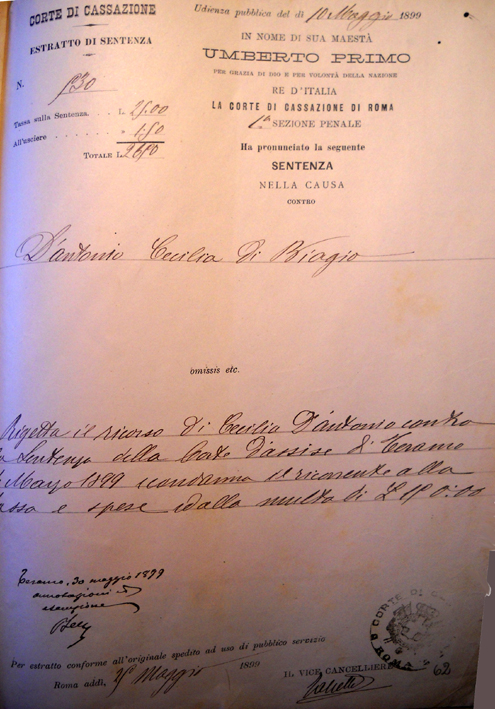 CORTE DI CASSAZIONE
ESTRATTO DI SENTENZA
N. 530
Tassa sulla Sentenza. . . L. 25.00
All'usciere . . . . . . . » 1.50
TOTALE L. 26.50
Udienza pubblica del dì 10 Maggio 1899
IN NOME DI SUA MAESTÀ
UMBERTO PRIMO
PER GRAZIA DI DIO E PER VOLONTÀ DELLA NAZIONE
RE D'ITALIA
LA CORTE DI CASSAZIONE DI ROMA
1ª SEZIONE PENALE
Ha pronunciato la seguente
SENTENZA
NELLA CAUSA
CONTRO
D'antonio Cecilia di Biagio
omissis etc.
Rigetta il ricorso di Cecilia D'antonio contro
la Sentenza della Corte D'assise di Teramo
Marzo 1899 condanna il ricorrente alla
tassa e spese e dalla multa di £
Teramo, 30 maggio 1899
annotazioni
Per estratto conforme all'originale spedito ad uso di pubblico servizio
Roma addì, 25 Maggio 1899
IL VICE CANCELLIERE
CORTE DI
ROMA
62